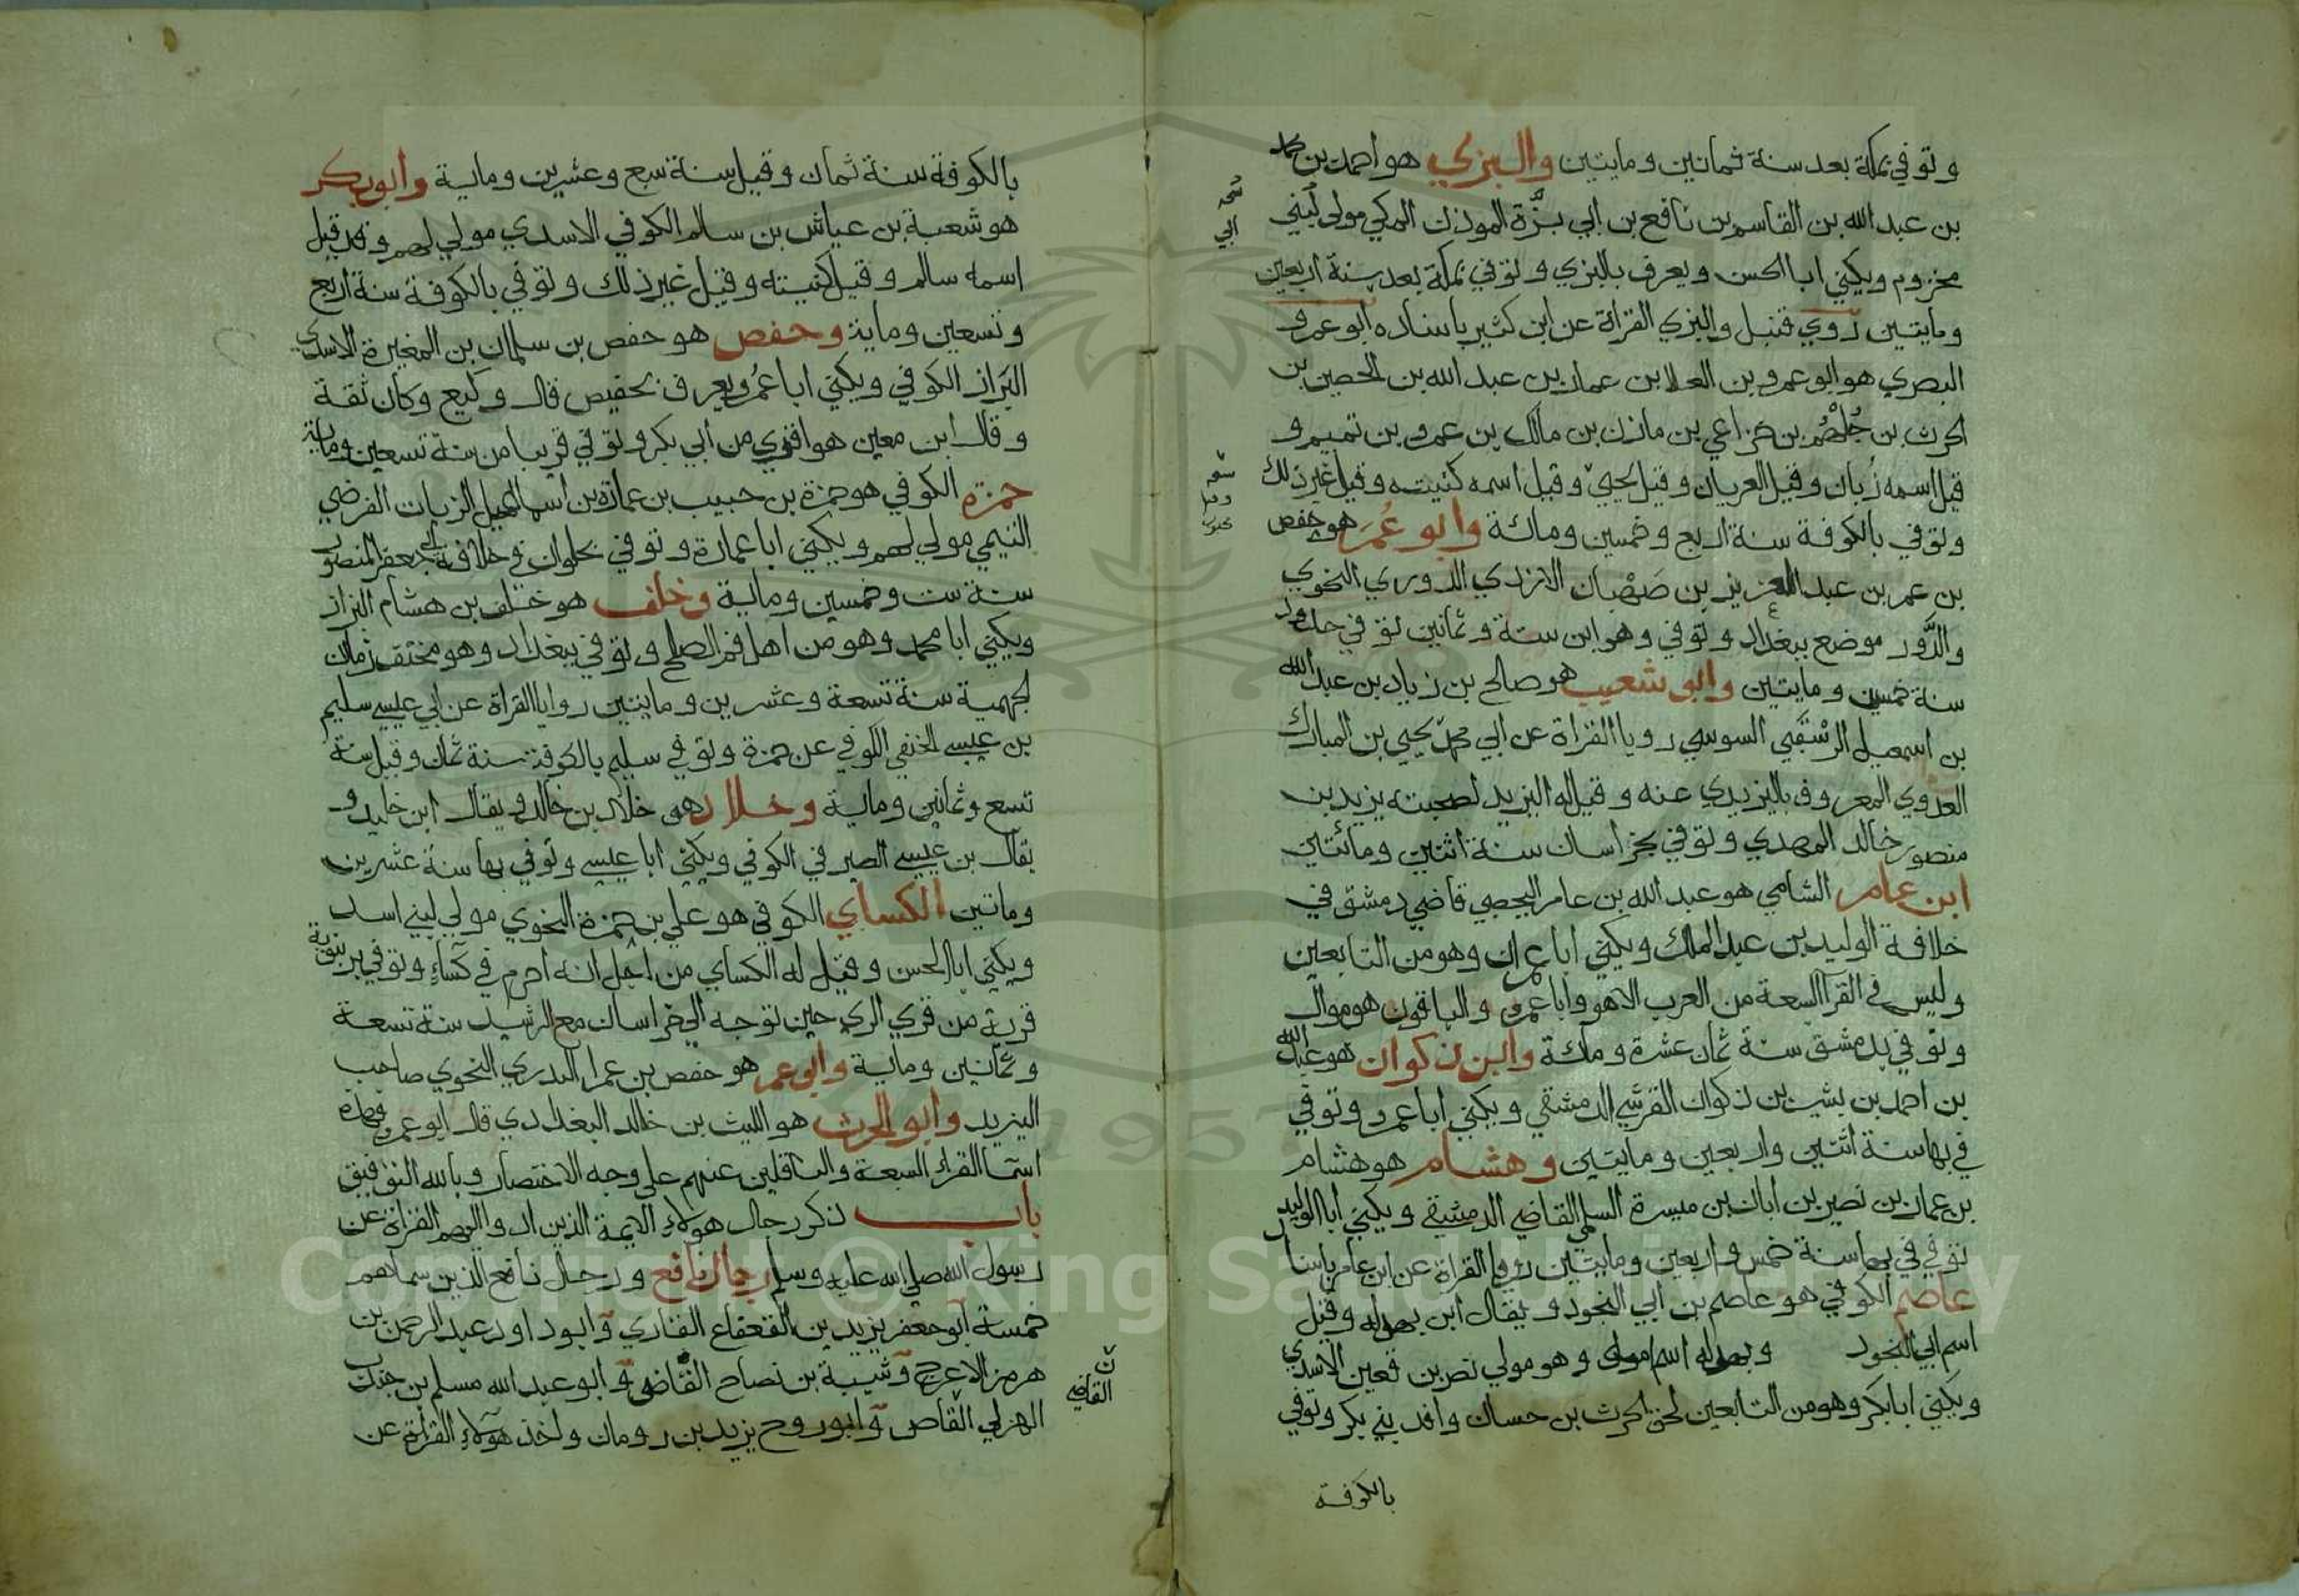 وتوفي بمكة بعد سنة ثمانين ومايتين والبزي هو احمد بن محمد
بن عبد الله بن القاسم بن نافع بن ابي بزة الموذن المكي مولى لبني
مخزوم ويكني ابا الحسن ويعرف بالبزي وتوفي بمكة بعد سنة اربعين
ومايتين روي قنبل والبزي القراة عن ابن كثير باسناده ابو عمرو
البصري هو ابو عمرو بن العلا بن عمار بن عبد الله بن الحصين بن
الحرث بن جُلْهُم بن خزاعي بن مازن بن مالك بن عمرو بن تميم و
قيل اسمه زُبان وقيل العريان وقيل يحيي وقيل اسمه كنيته وقيل غير ذلك
وتوفي بالكوفة سنة اربع وخمسين ومائة وابو عُمَر هو حفص
بن عمر بن عبد العزيز بن صَهْبان الازدي الدوري النحوي
والدَّور موضع ببغداد وتوفي وهو ابن ستة وثمانين توفي في حدود
سنة خمسين ومايتين وابو شعيب هو صالح بن زياد بن عبد الله
بن اسمعيل الرُسْتَبي السوسي رويا القراة عن ابي محمد يحيي بن المبارك
العدوي المعروف باليزيدي عنه وقيل له اليزيد لصحبته يزيد بن
منصور خالد المهدي وتوفي بخراسان سنة اثنين ومائتين
ابن عامر الشامي هو عبد الله بن عامر اليحصبي قاضي دمشق في
خلافة الوليد بن عبد الملك ويكني ابا عمران وهو من التابعين
وليس في القرآ السبعة من العرب الا هو وابا عمرو والباقون هو موال
وتوفي بدمشق سنة ثمان عشرة ومائة وابن ذكوان هو عبد الله
بن احمد بن بشير بن ذكوان القرشي الدمشقي ويكني ابا عمرو وتوفي
في بها سنة اثنتين واربعين ومايتين وهشام هو هشام
بن عمار بن نصير بن ابان بن ميسرة السلمي القاضي الدمشقي ويكني ابا الوليد
توفي في بها سنة خمس واربعين ومايتين رويا القراة عن ابن عامر باسنا
عاصم الكوفي هو عاصم بن ابي النجود ويقال ابن بهدله وقيل
اسم ابي النجود وبهدله اسم امه وهو مولي نصر بن قعين الاسدي
ويكني ابا بكر وهو من التابعين لحق الحرث بن حسان وافد بني بكر وتوفي
بالكوفة
بالكوفة سنة ثمان وقيل سنة سبع وعشرين وماية وابو بكر
هو شعبة بن عياش بن سالم الكوفي الاسدي مولي لهم وقد قيل
اسمه سالم وقيل كنيته وقيل غير ذلك وتوفي بالكوفة سنة اربع
وتسعين وماية وحفص هو حفص بن سلمان بن المغيرة الاسدي
البزاز الكوفي ويكني ابا عُمر ويعرف بحفيص قال وكيع وكان ثقة
وقال ابن معين هو اقوي من ابي بكر وتوفي قريبا من سنة تسعين وماية
حمزة الكوفي هو حمزة بن حبيب بن عمارة بن اسماعيل الزيات الفرضي
التيمي مولي لهم ويكني ابا عمارة وتوفي بحلوان في خلافة ابي جعفر المنصور
سنة ست وخمسين وماية وخلف هو خلف بن هشام البزاز
ويكني ابا محمد وهو من اهل فم الصلح وتوفي ببغداد وهو مختف زمان
الجهمية سنة تسعة وعشرين ومايتين رويا القراة عن ابي عيسي سليم
بن عيسي الحنفي الكوفي عن حمزة وتوفي سليم بالكوفة سنة ثمان وقيل سنة
تسع وثمانين وماية وخلاد هو خلاد بن خالد ويقال ابن خليد و
يقال بن عيسي الصيرفي الكوفي ويكني ابا عيسي وتوفي بها سنة عشرين
وماتين الكساي الكوفي هو علي بن حمزة النحوي مولي لبني اسد
ويكني ابا الحسن وقيل له الكساي من اجل انه احرم في كساءٍ وتوفي برنبوية
قرية من قري الري حين توجه الي خراسان مع الرشيد سنة تسعة
وثمانين وماية وابو عمر هو حفص بن عمر الدري النحوي صاحب
اليزيد وابو الحرث هو الليث بن خالد البغدادي قال ابو عمرو فهذه
اسما القراء السبعة والناقلين عنهم علي وجه الاختصار وبالله التوفيق
باب ذكر رجال هولاءِ الايمة الذين ادوا اليهم القراة عن
رسول الله صلي الله عليه وسلم رجال نافع ورجال نافع الذين سماهم
خمسة ابو جعفر يزيد بن القعقاع القاري وابو داود عبد الرحمن بن
هرمز الاعرج وشيبة بن نصاح القاضي وابو عبد الله مسلم بن جندب
الهزلي القاص وابو روح يزيد بن رومان واخذ هولاءِ القراة عن
ن
القاضي
Copyright © King Saud University
1957